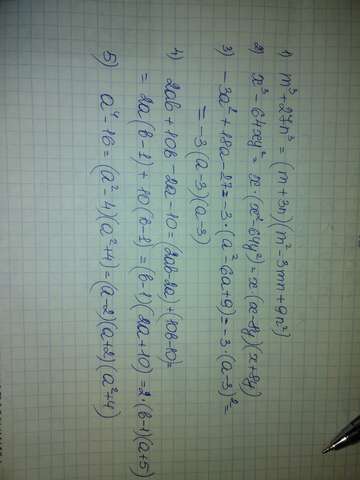 1) m³+27n³=(m+3n)(m²-3mn+9n²)
2) x³-64xy²=x·(x²-64y²)=x(x-8y)(x+8y)
3) -3a²+18a-27=-3·(a²-6a+9)=-3·(a-3)²=
=-3(a-3)(a-3)
4) 2ab+10b-2a-10=(2ab-2a)+(10b-10)=
=2a(b-1)+10(b-1)=(b-1)(2a+10)=2·(b-1)(a+5)
5) a⁴-16=(a²-4)(a²+4)=(a-2)(a+2)(a²+4)